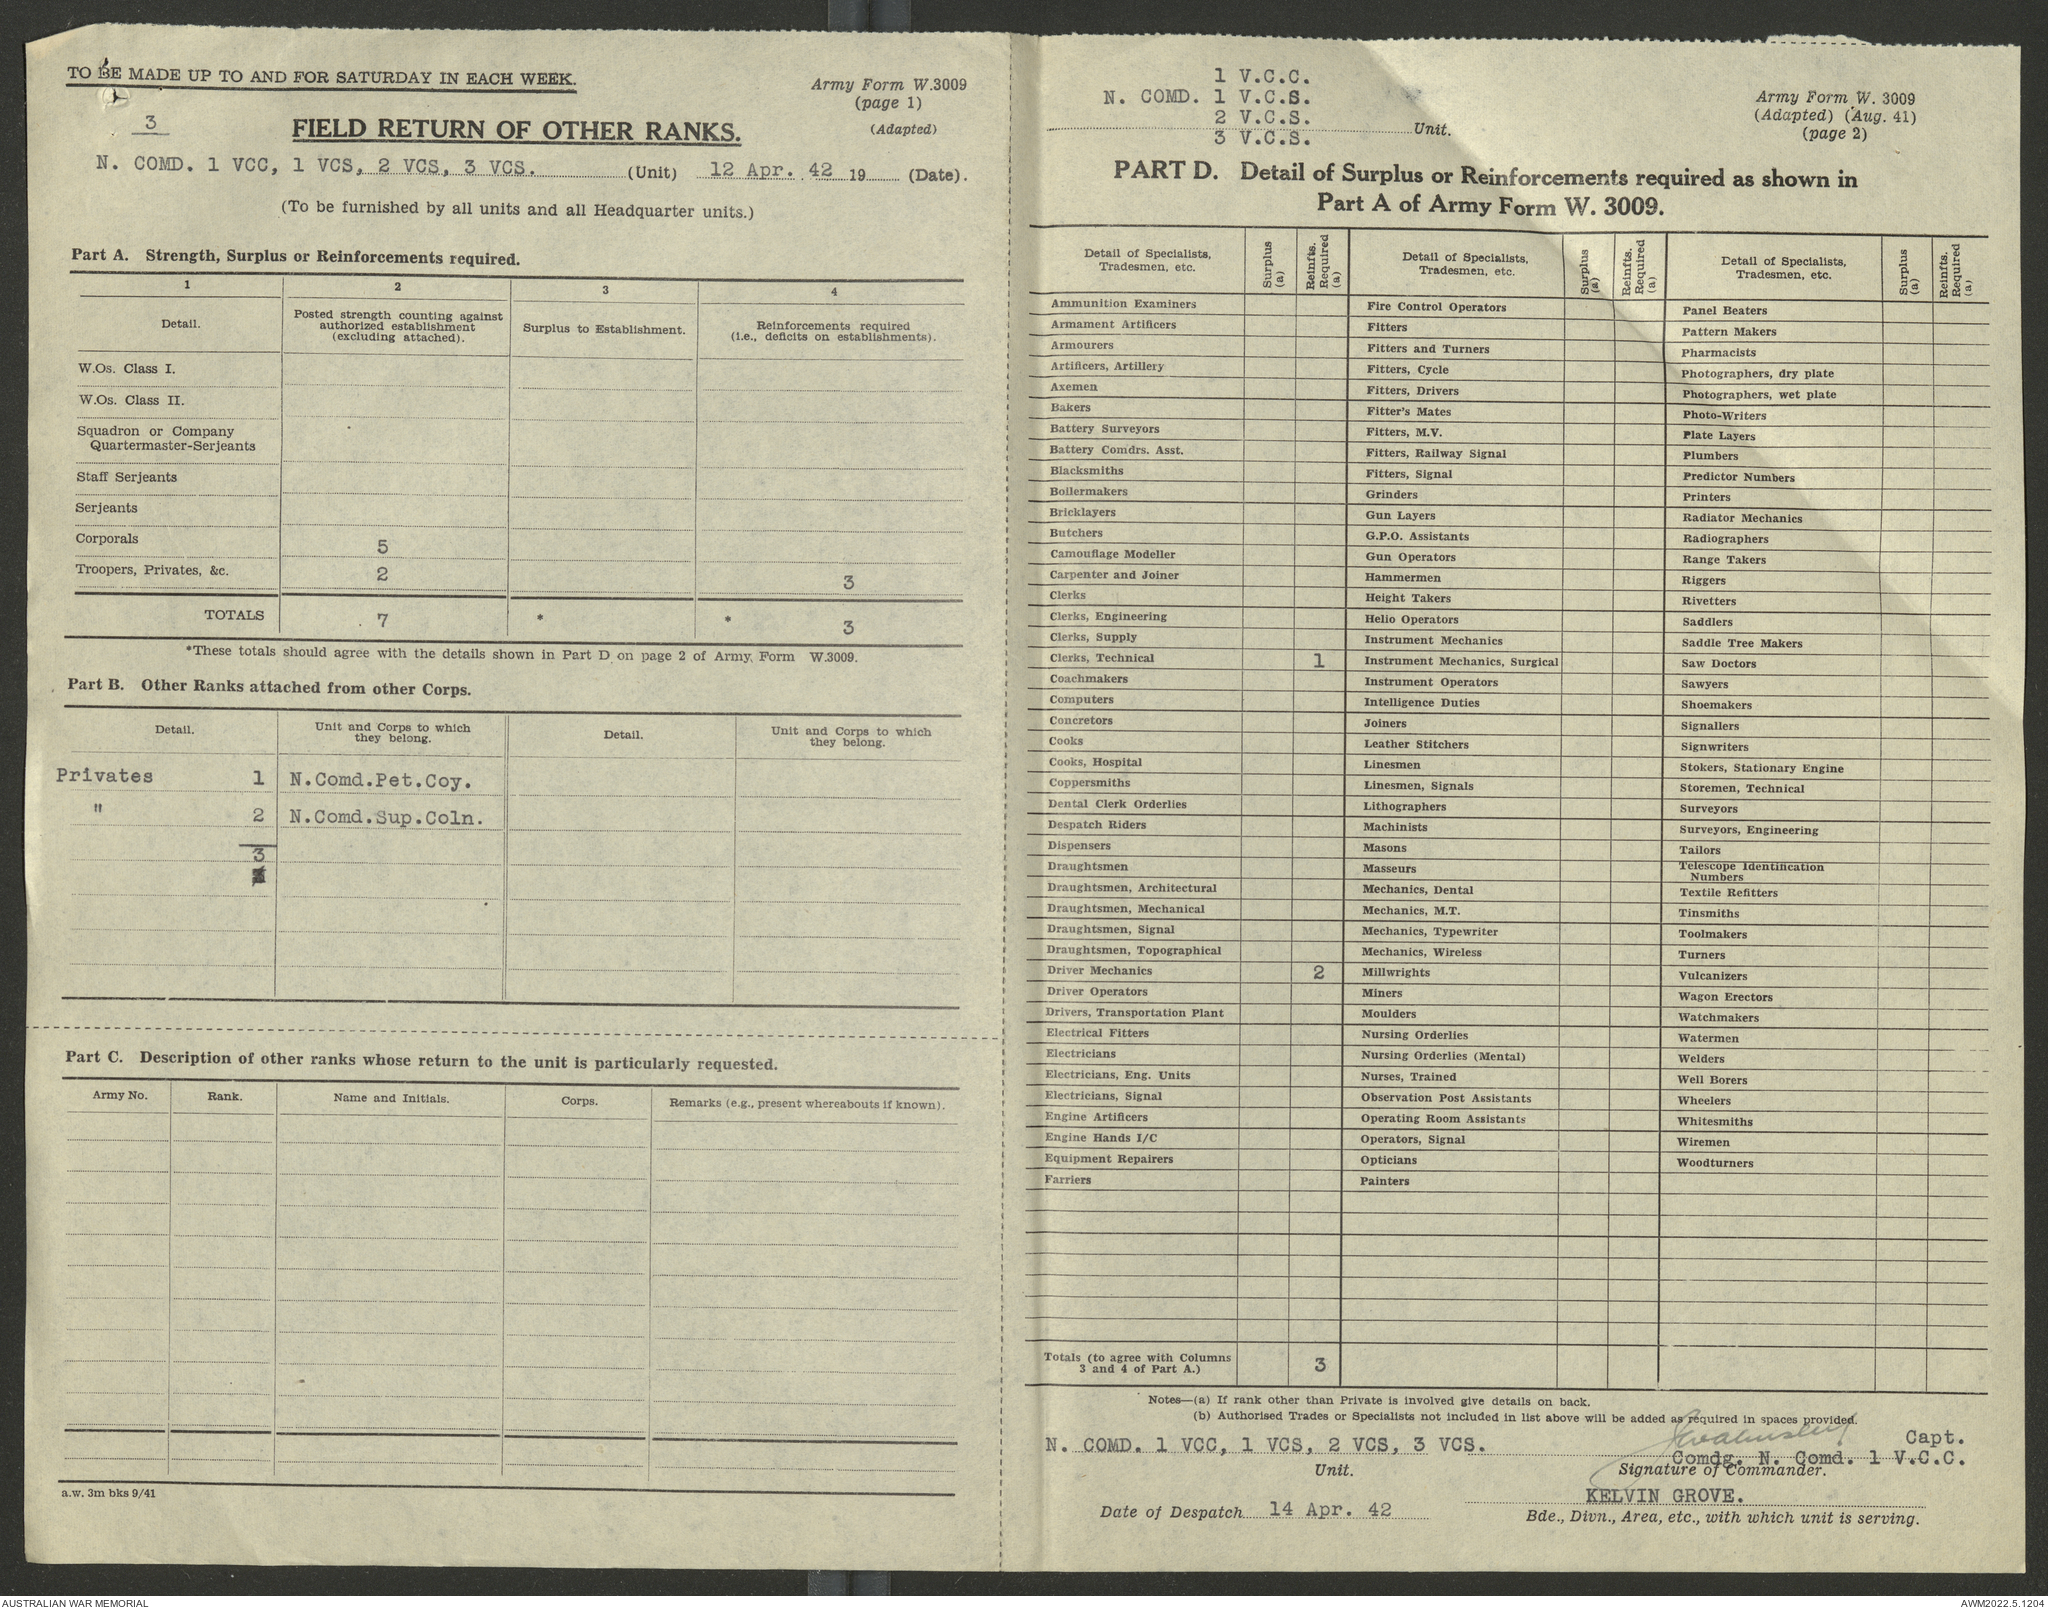 TO BE MADE UP TO AND FOR SATURDAY IN EACH WEEK.
Army Form W.3009
(page 1)
(Adapted)
3
FIELD RETURN OF OTHER RANKS.
N. COMD. 1 VCC, 1 VCS, 2 VCS, 3 VCS. (Unit) 12 Apr. 42 19 (Date).
(To be furnished by all units and all Headquarter units.)
Part A. Strength, Surplus or Reinforcements required.
1 2 3 4
Detail.
Posted strength counting against
authorized establishment
(excluding attached).
Surplus to Establishment.
Reinforcements required
(i.e., deficits on establishments).
W.Os. Class I.
W.Os. Class II.
Squadron or Company
Quartermaster-Serjeants
Staff Serjeants
Serjeants
Corporals 5
Troopers, Privates, &c. 2 3
TOTALS 7 * * 3
*These totals should agree with the details shown in Part D on page 2 of Army Form W.3009.
Part B. Other Ranks attached from other Corps.
Detail.
Unit and Corps to which
they belong.
Detail.
Unit and Corps to which
they belong.
Privates 1 N.Comd.Pet.Coy.
" 2 N.Comd.Sup.Coln.
3
Part C. Description of other ranks whose return to the unit is particularly requested.
Army No. Rank. Name and Initials. Corps. Remarks (e.g., present whereabouts if known).
a.w. 3m bks 9/41
1 V.C.C.
N. COMD. 1 V.C.S.
2 V.C.S.
Unit.
3 V.C.S.
Army Form W. 3009
(Adapted) (Aug. 41)
(page 2)
PART D. Detail of Surplus or Reinforcements required as shown in
Part A of Army Form W. 3009.
Detail of Specialists,
Tradesmen, etc.
Surplus
(a)
Reinfts.
Required
(a)
Detail of Specialists,
Tradesmen, etc.
Surplus
(a)
Reinfts.
Required
(a)
Detail of Specialists,
Tradesmen, etc.
Surplus
(a)
Reinfts.
Required
(a)
Ammunition Examiners
Armament Artificers
Armourers
Artificers, Artillery
Axemen
Bakers
Battery Surveyors
Battery Comdrs. Asst.
Blacksmiths
Boilermakers
Bricklayers
Butchers
Camouflage Modeller
Carpenter and Joiner
Clerks
Clerks, Engineering
Clerks, Supply
Clerks, Technical 1
Coachmakers
Computers
Concretors
Cooks
Cooks, Hospital
Coppersmiths
Dental Clerk Orderlies
Despatch Riders
Dispensers
Draughtsmen
Draughtsmen, Architectural
Draughtsmen, Mechanical
Draughtsmen, Signal
Draughtsmen, Topographical
Driver Mechanics 2
Driver Operators
Drivers, Transportation Plant
Electrical Fitters
Electricians
Electricians, Eng. Units
Electricians, Signal
Engine Artificers
Engine Hands I/C
Equipment Repairers
Farriers
Fire Control Operators
Fitters
Fitters and Turners
Fitters, Cycle
Fitters, Drivers
Fitter's Mates
Fitters, M.V.
Fitters, Railway Signal
Fitters, Signal
Grinders
Gun Layers
G.P.O. Assistants
Gun Operators
Hammermen
Height Takers
Helio Operators
Instrument Mechanics
Instrument Mechanics, Surgical
Instrument Operators
Intelligence Duties
Joiners
Leather Stitchers
Linesmen
Linesmen, Signals
Lithographers
Machinists
Masons
Masseurs
Mechanics, Dental
Mechanics, M.T.
Mechanics, Typewriter
Mechanics, Wireless
Millwrights
Miners
Moulders
Nursing Orderlies
Nursing Orderlies (Mental)
Nurses, Trained
Observation Post Assistants
Operating Room Assistants
Operators, Signal
Opticians
Painters
Panel Beaters
Pattern Makers
Pharmacists
Photographers, dry plate
Photographers, wet plate
Photo-Writers
Plate Layers
Plumbers
Predictor Numbers
Printers
Radiator Mechanics
Radiographers
Range Takers
Riggers
Rivetters
Saddlers
Saddle Tree Makers
Saw Doctors
Sawyers
Shoemakers
Signallers
Signwriters
Stokers, Stationary Engine
Storemen, Technical
Surveyors
Surveyors, Engineering
Tailors
Telescope Identification
Numbers
Textile Refitters
Tinsmiths
Toolmakers
Turners
Vulcanizers
Wagon Erectors
Watchmakers
Watermen
Welders
Well Borers
Wheelers
Whitesmiths
Wiremen
Woodturners
Totals (to agree with Columns
3 and 4 of Part A.) 3
Notes—(a) If rank other than Private is involved give details on back.
(b) Authorised Trades or Specialists not included in list above will be added as required in spaces provided.
N. COMD. 1 VCC, 1 VCS, 2 VCS, 3 VCS.
Unit.
Capt.
Comdg. N. Comd. 1 V.C.C.
Signature of Commander.
KELVIN GROVE.
Date of Despatch 14 Apr. 42
Bde., Divn., Area, etc., with which unit is serving.
AUSTRALIAN WAR MEMORIAL
AWM2022.5.1204